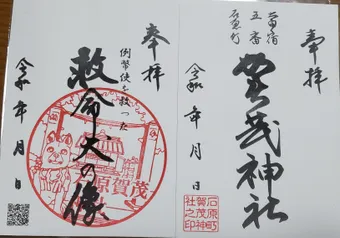 奉拝
賀茂神社
令和　年　月　日
石原町
賀茂神
社之印
奉拝
例幣使を救った
救命犬の像
令和　年　月　日
石原賀茂